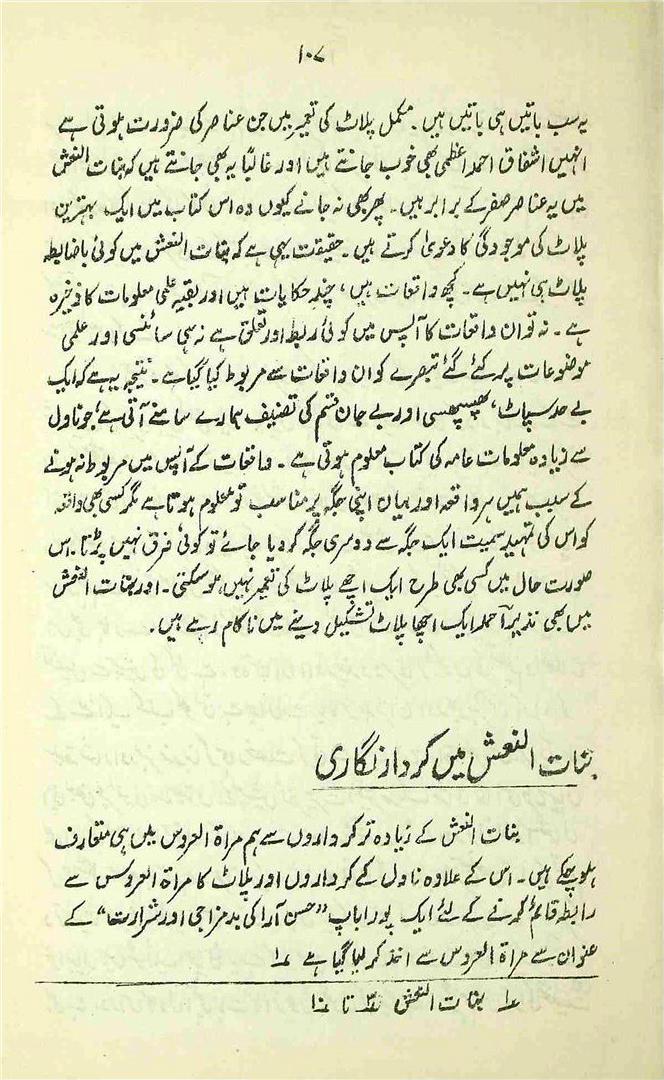 ۱۰۷
یہ سب باتیں ہی باتیں ہیں۔ مکمل پلاٹ کی تعمیر میں جن عناصر کی ضرورت ہوتی ہے
انہیں اشفاق احمد اعظمی بھی خوب جانتے ہیں اور غالباً یہ بھی جانتے ہیں کہ بنات النعش
میں یہ عناصر صفر کے برابر ہیں۔ پھر بھی نہ جانے کیوں وہ اس کتاب میں ایک بہترین
پلاٹ کی موجودگی کا دعویٰ کرتے ہیں۔ حقیقت یہی ہے کہ بنات النعش میں کوئی باضابطہ
پلاٹ ہی نہیں ہے۔ کچھ واقعات ہیں، چند حکایات ہیں اور بقیہ علمی معلومات کا ذخیرہ
ہے۔ نہ تو ان واقعات کا آپس میں کوئی ربط اور تعلق ہے نہ ہی سائنسی اور علمی
موضوعات پر کئے گئے تبصرے کو ان واقعات سے مربوط کیا گیا ہے۔ نتیجہ یہ ہے کہ ایک
بے حد سپاٹ، پھسپھسی اور بے جان قسم کی تصنیف ہمارے سامنے آتی ہے، جو ناول
سے زیادہ معلومات عامہ کی کتاب معلوم ہوتی ہے۔ واقعات کے آپس میں مربوط نہ ہونے
کے سبب ہمیں ہر واقعہ اور بیان اپنی جگہ پر مناسب تو معلوم ہوتا ہے مگر کسی بھی واقعہ
کو اس کی تمہید سمیت ایک جگہ سے دوسری جگہ کر دیا جائے تو کوئی فرق نہیں پڑتا۔ اس
صورت حال میں کسی بھی طرح ایک اچھے پلاٹ کی تعمیر نہیں ہو سکتی۔ اور بنات النعش
میں بھی نذیر احمد ایک اچھا پلاٹ تشکیل دینے میں ناکام رہے ہیں۔
بنات النعش میں کردار نگاری
بنات النعش کے زیادہ تر کرداروں سے ہم مراۃ العروس میں ہی متعارف
ہو چکے ہیں۔ اس کے علاوہ ناول کے کرداروں اور پلاٹ کا مراۃ العروس سے
رابطہ قائم کرنے کے لئے ایک پورا باپ "حسن آرا کی بدمزاجی اور شرارت" کے
عنوان سے مراۃ العروس سے اخذ کر لیا گیا ہے
بنات النعش تا